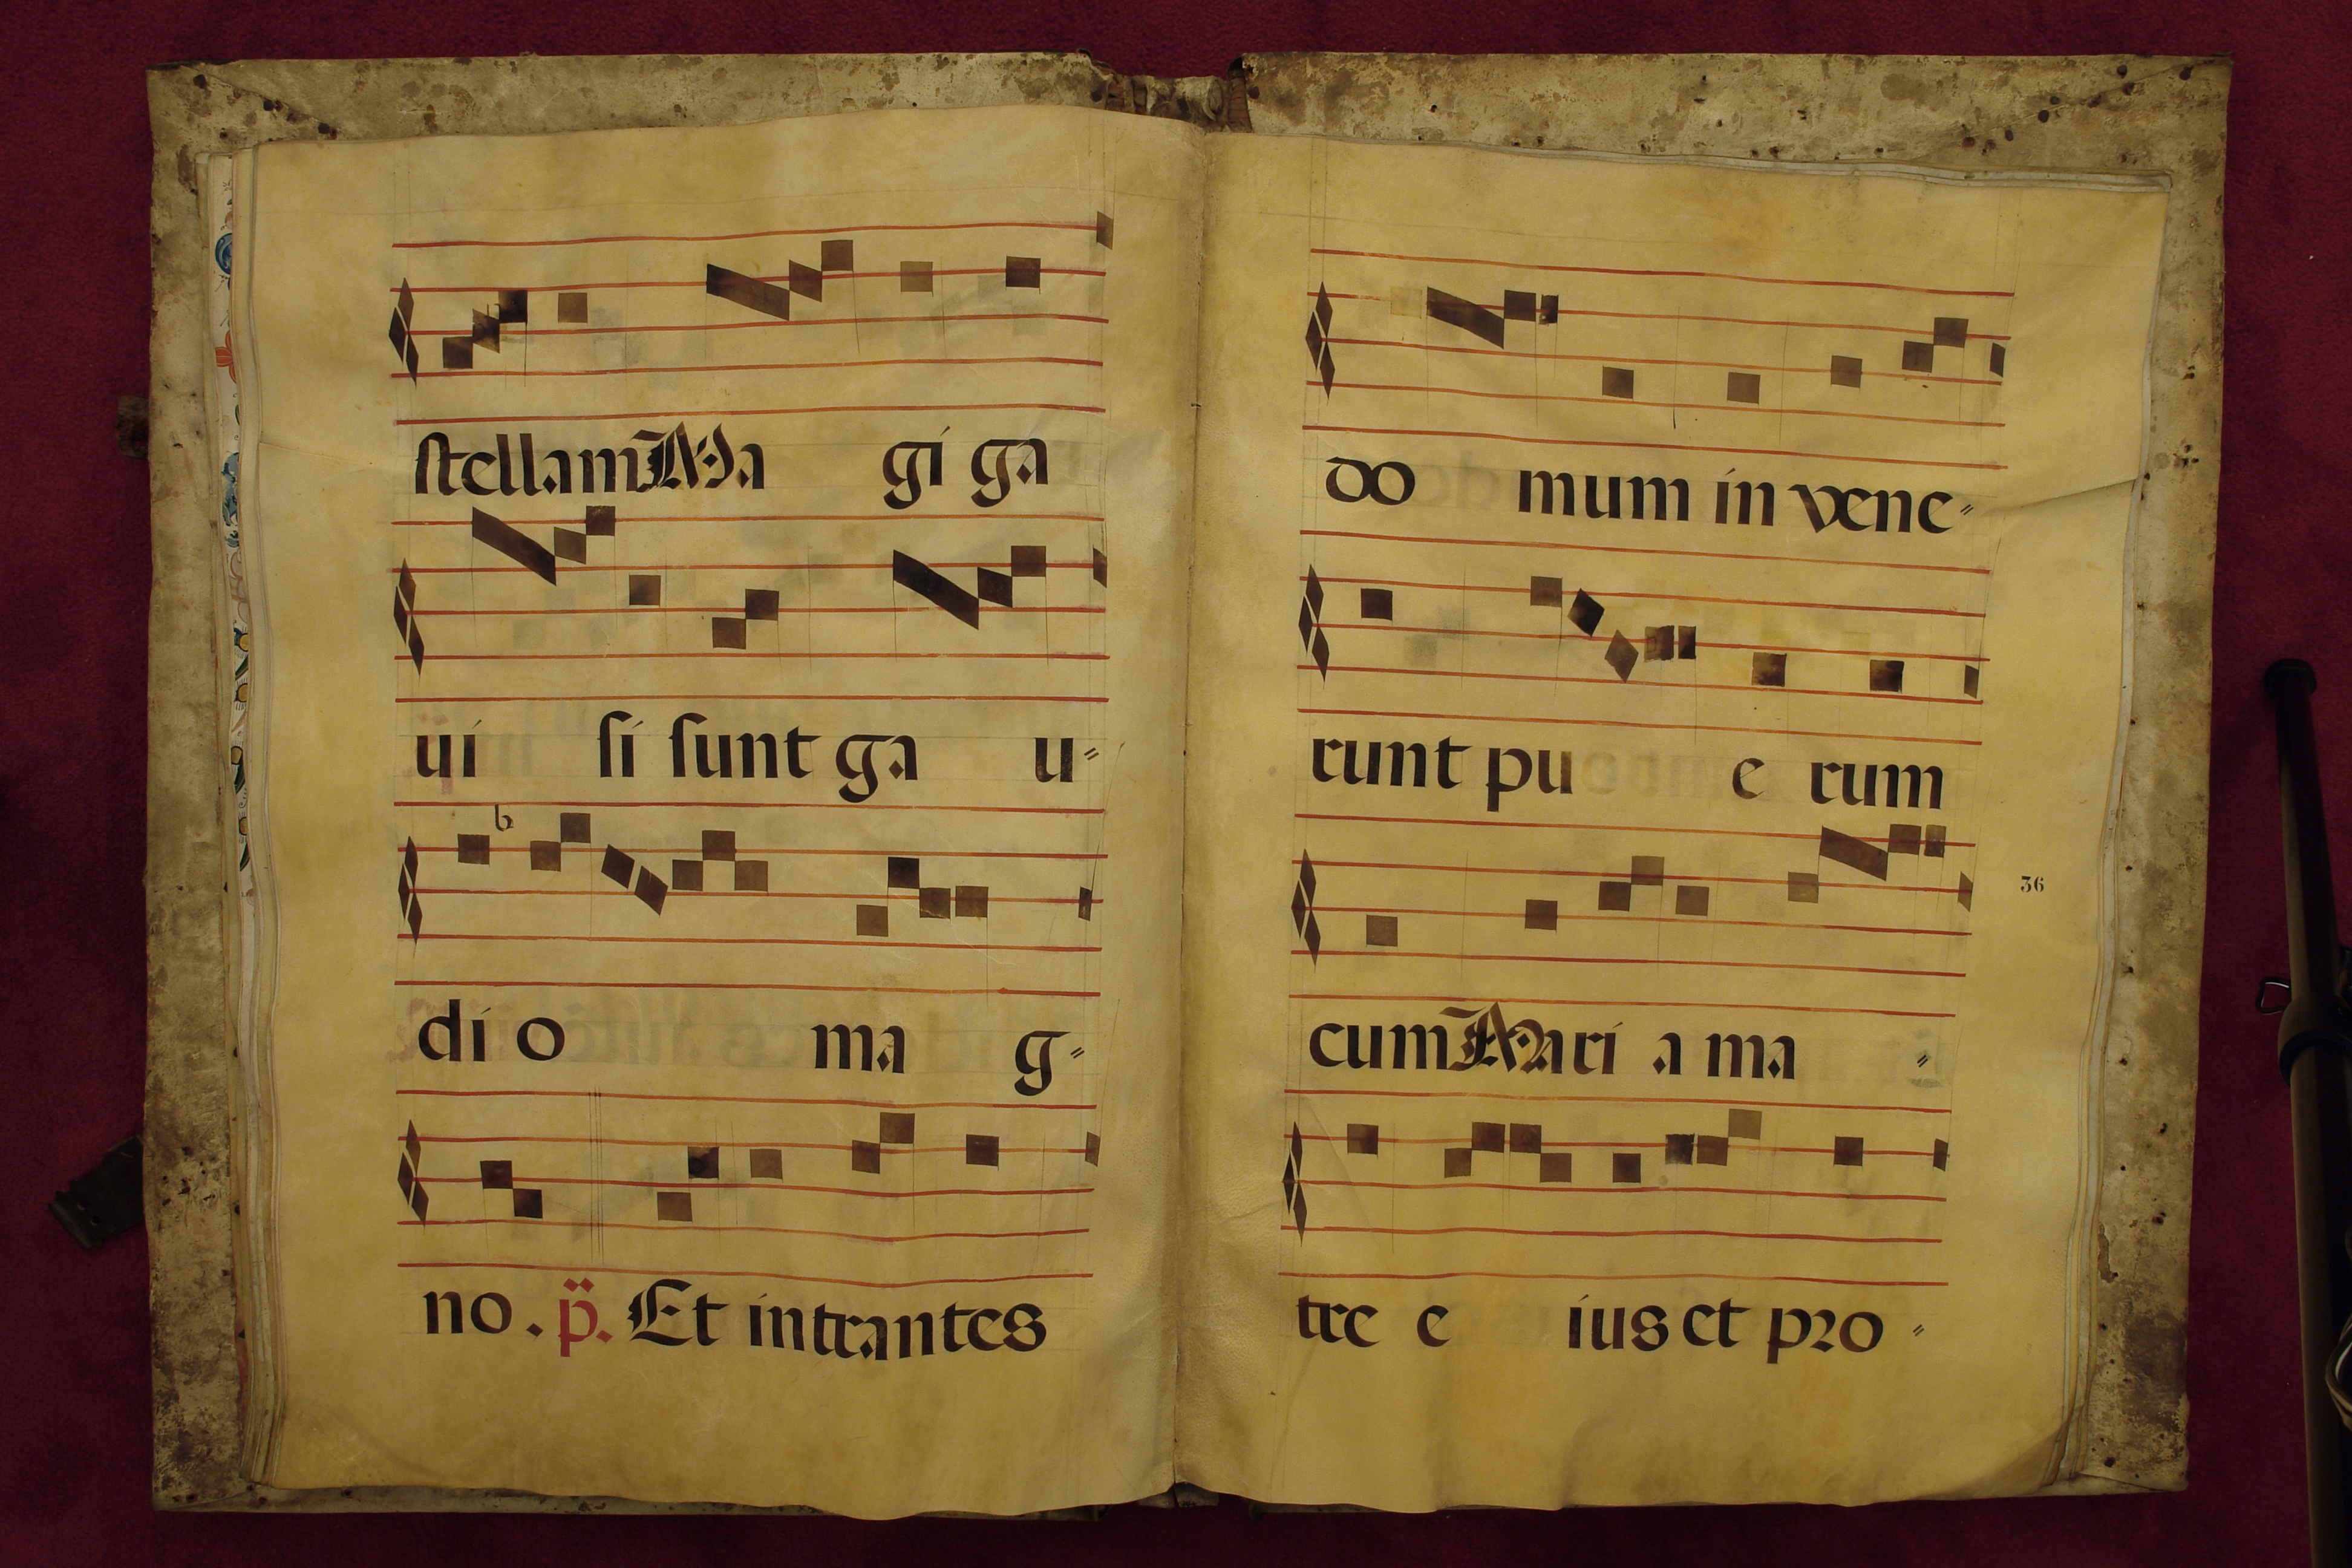 stellam Ma gi ga
ui si sunt ga u-
di o ma g-
no. p. Et intrantes
do mum in vene-
runt pu e rum
36
cum Mari a ma -
tre e ius et pro -